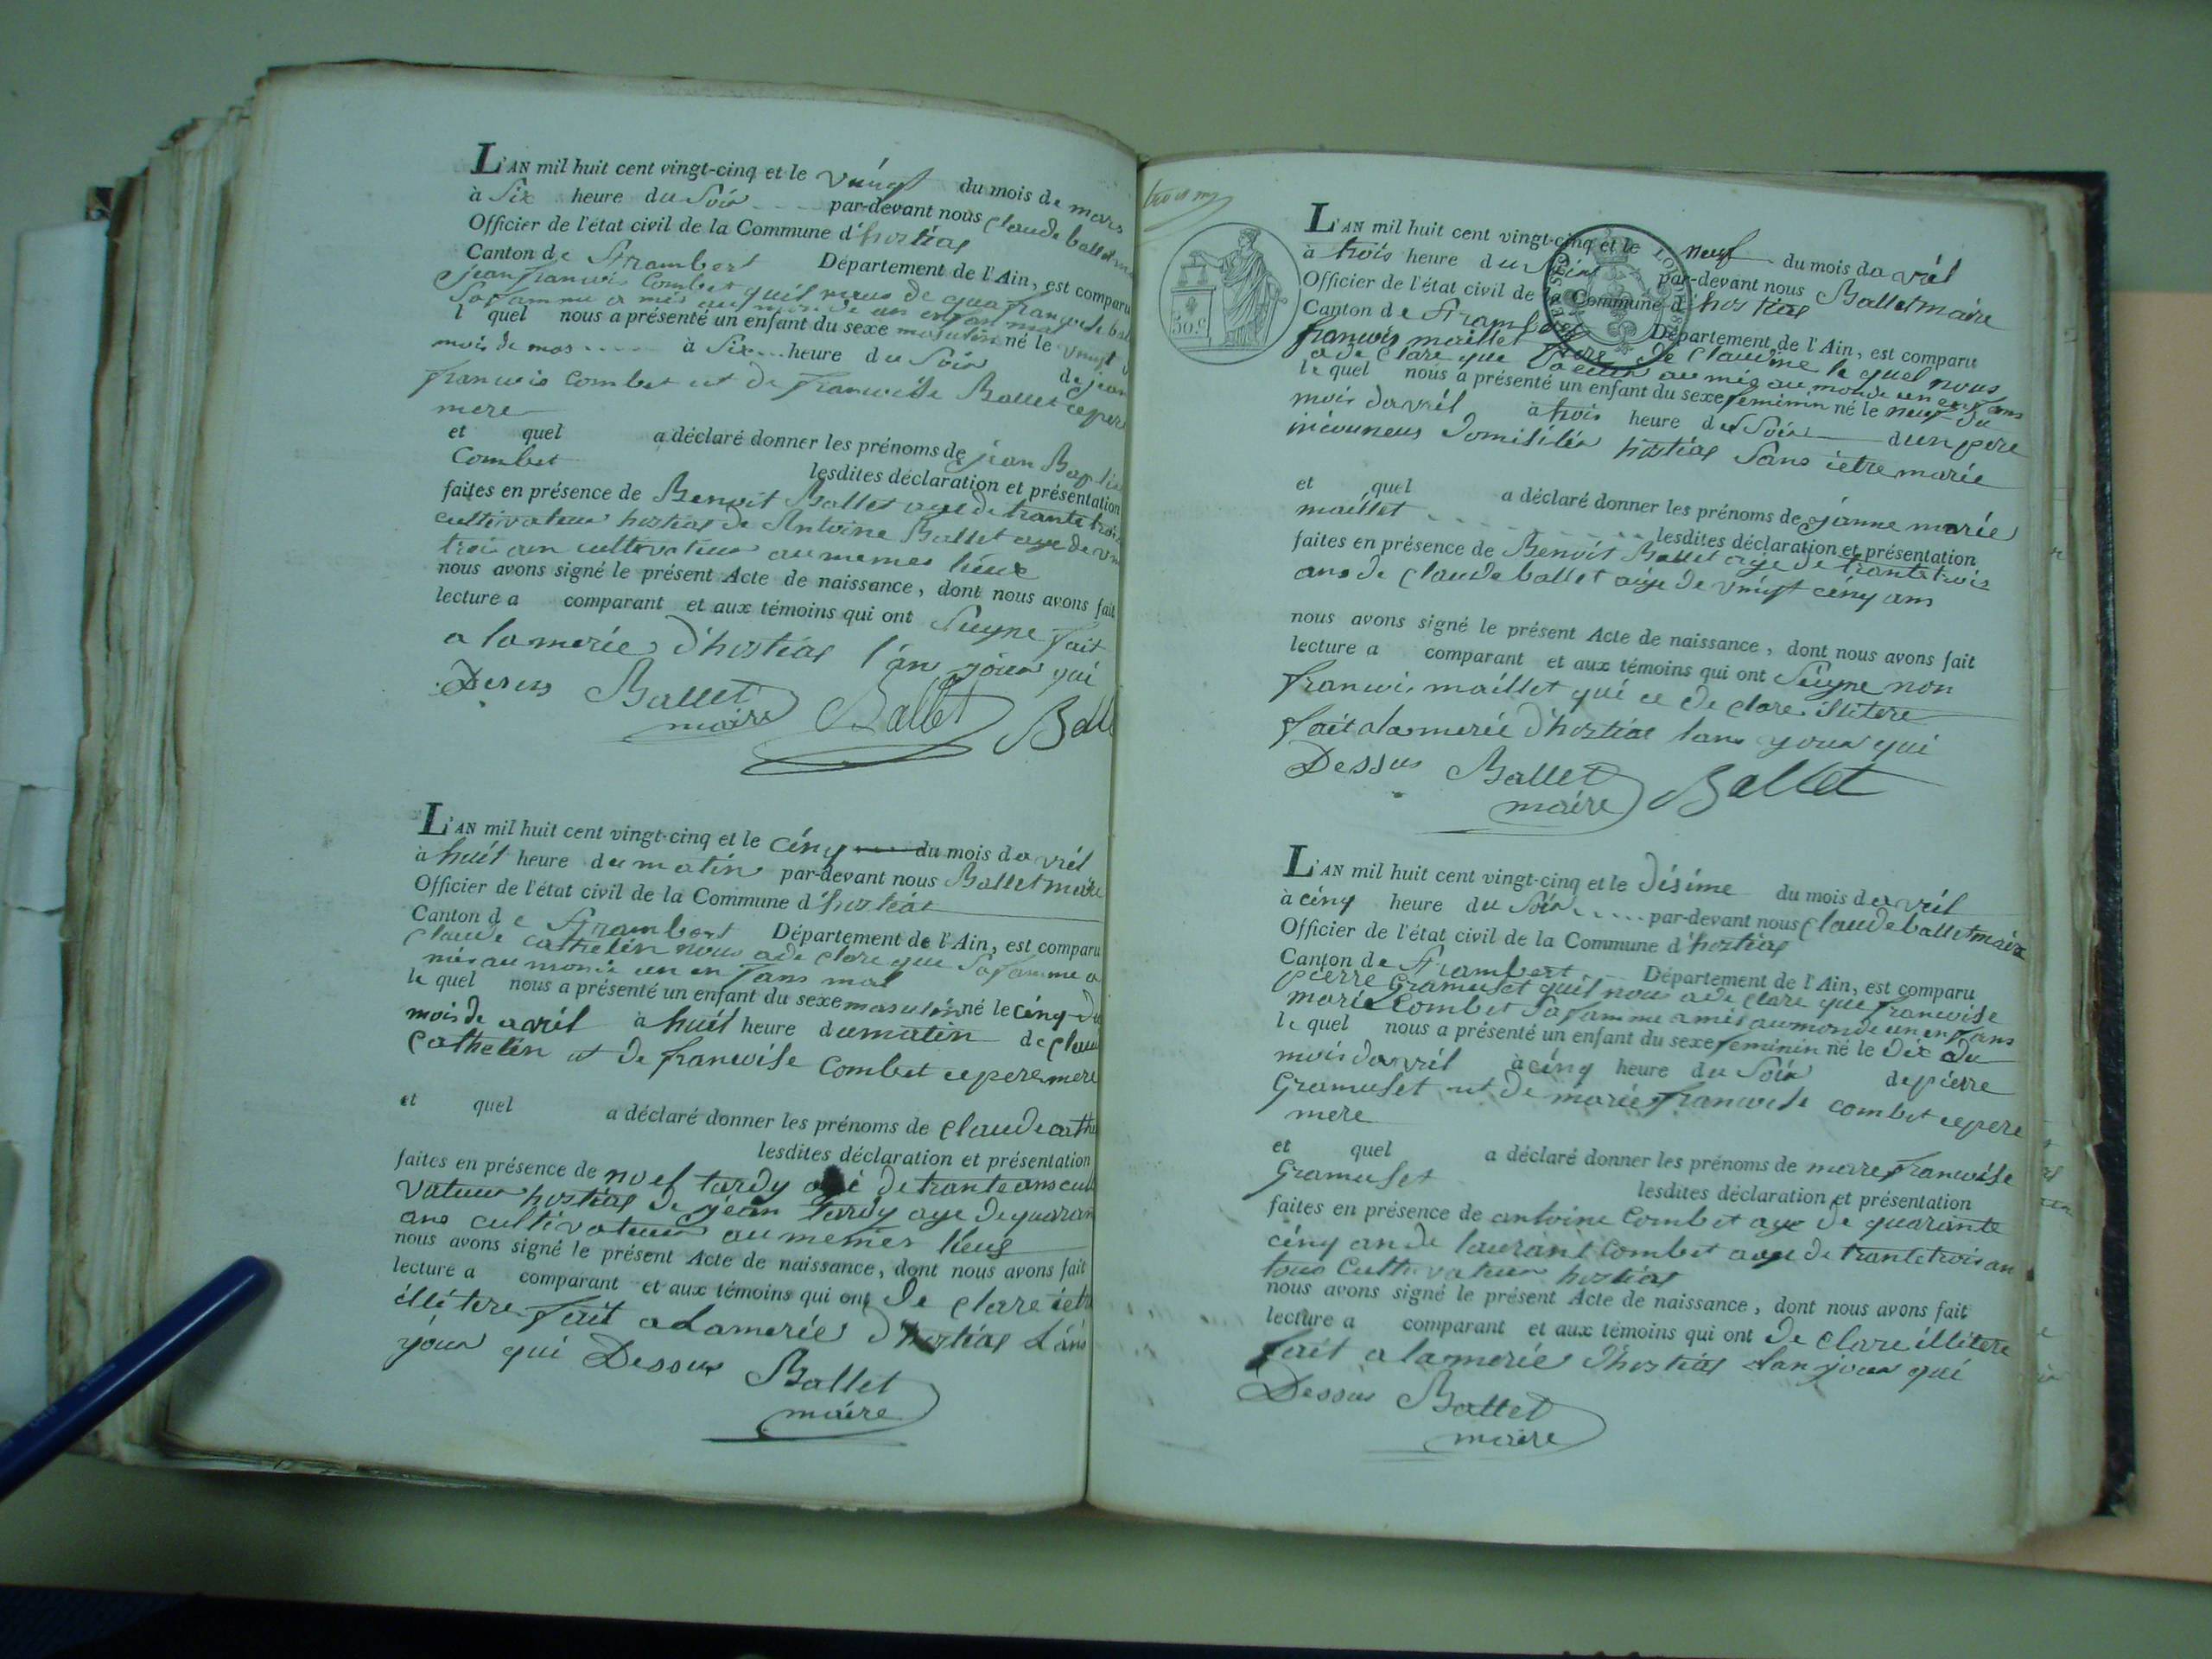 L'AN mil huit cent vingt-cinq et le vuingt du mois de mars
à Six heure du Soir par-devant nous Claude ballet
Officier de l'état civil de la Commune d'hostias
Canton de St rambert Département de l'Ain, est comparu
jean francois Combet quil nous de francoise
Sa famme a mis au monde un enfan mal
l quel nous a présenté un enfant du sexe masculin né le vuingt
mois de mas à Six heure du Soir de jean
francois combet et de francoise Ballet ce pere
mere
et quel a déclaré donner les prénoms de jean
Combet lesdites déclaration et présentation
faites en présence de Benoit Ballet age de trante trois
cultivateur hostias de Antoine Ballet age de
trois an cultivateur au memes lieux
nous avons signé le présent Acte de naissance, dont nous avons fait
lecture a comparant et aux témoins qui ont Sieyne fait
a la merie d'hostias l'an jour qui
Desus Ballet Ballet
maire
L'AN mil huit cent vingt-cinq et le cinq du mois da vril
à huit heure du matin par-devant nous Ballet maire
Officier de l'état civil de la Commune d'hostias
Canton de St rambert Département de l'Ain, est comparu
Claude cathelin nous a de clare que Sa famme a
mis au monde un en fans mal
le quel nous a présenté un enfant du sexe masculin né le cinq du
mois de avril à huit heure du matin de
Cathelin et de francoise Combet ce pere mere
et quel a déclaré donner les prénoms de Claude
lesdites déclaration et présentation
faites en présence de noel tardy agé de trante ans
vateur hostias de jean tardy age de
ans cultivateur au memes lieus
nous avons signé le présent Acte de naissance, dont nous avons fait
lecture a comparant et aux témoins qui ont De clare
illitere fait a la merie d'hostias L'an
jour qui Dessus Ballet
maire
L'AN mil huit cent vingt-cinq et le neuf du mois da vril
à trois heure du Soir par-devant nous Ballet maire
Officier de l'état civil de la Commune d'hostias
Canton de St rambert Département de l'Ain, est comparu
30.c
francois maillet frere de Claudine le quel nous
a de clare que Sa seur au mis au monde un enfans
le quel nous a présenté un enfant du sexe feminin né le neuf du
mois davril à trois heure du Soir dun pere
incouneus domisilier hostias Sans ietre marie
et quel a déclaré donner les prénoms de janne marie
maillet lesdites déclaration et présentation
faites en présence de Benoit Ballet age de trante trois
ans de Claude ballet aige de vuingt cinq ans
nous avons signé le présent Acte de naissance, dont nous avons fait
lecture a comparant et aux témoins qui ont Sieyne non
francois maillet qui ce de clare illitere
fait a la merie d'hostias lans jour qui
Dessus Ballet Ballet
maire
L'AN mil huit cent vingt-cinq et le disime du mois da vril
à cinq heure du Soir par-devant nous Claude ballet maire
Officier de l'état civil de la Commune d'hostias
Canton de St rambert Département de l'Ain, est comparu
pierre Gramuset quil nous a de clare que francoise
marie Combet Sa famme a mis au monde un enfans
le quel nous a présenté un enfant du sexe feminin né le dix du
mois davril à cinq heure du Soir de pierre
Gramuset et de marie francoise combet ce pere
mere
et quel a déclaré donner les prénoms de marre francoise
Gramuset lesdites déclaration et présentation
faites en présence de antoine Combet age de quarante
cinq an de laurant Combet age de trante trois an
tous Cultivateur hostias
nous avons signé le présent Acte de naissance, dont nous avons fait
lecture a comparant et aux témoins qui ont De clare illitere
fait a la merie d'hostias lan jour qui
Dessus Ballet
maire